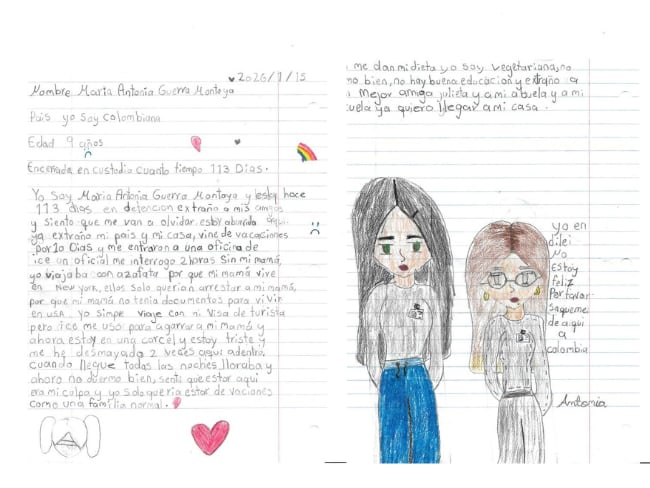 2026/1/15
Nombre Maria Antonia Guerra Montoya
Pais yo soy colombiana
Edad 9 años
Encerrada en custodia cuanto tiempo 113 Dias.
Yo soy Maria Antonia Guerra Montoya y hace
113 dias en detencion extraño a mis amigos
y siento que me van a olvidar. estoy aburrida aqui.
ya extraño mi pais y mi casa, vine de vacaciones
por 10 Dias y me entraron a una oficina de
ice un oficial me interrogo 2 horas sin mi mamá,
yo viajaba con azafata por que mi mamá vive
en New york, ellos solo querian arrestar a mi mamá,
por que mi mamá no tenia documentos para vivir
en USA. yo simpre viaje con mi visa de turista
pero ice me uso para agarrar a mi mamá y
ahora estoy en una carcel y estoy triste y
me he desmayado 2 veces aqui adentro,
cuando llegue todas las noches lloraba y
ahora no duermo bien, senti que estar aqui
era mi culpa y yo solo queria estar de vaciones
como una familia normal.
me dan mi dieta yo soy vegetariana, no
mo bien, no hay buena educacion y extraño a
mejor amiga julieta y a mi abuela y a mi
cuela ya quiero llegar a mi casa.
yo en
dilei
NO
ESTOY
feliz
Por favor
saqueme
de aqui
a
colombia
Antonia